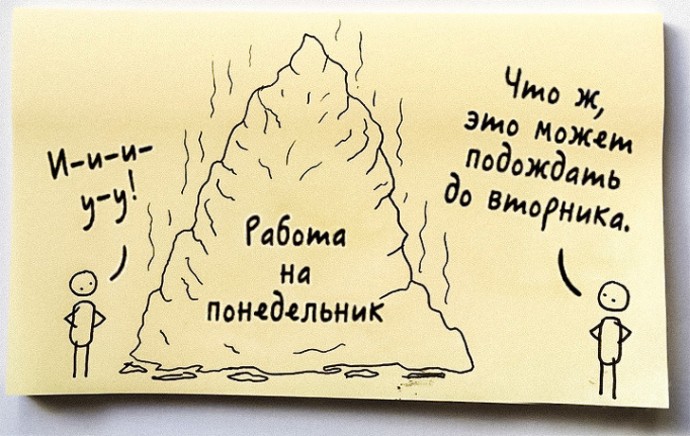 И-и-и-
у-у!
Работа
на
понедельник
Что ж,
это может
подождать
до вторника.